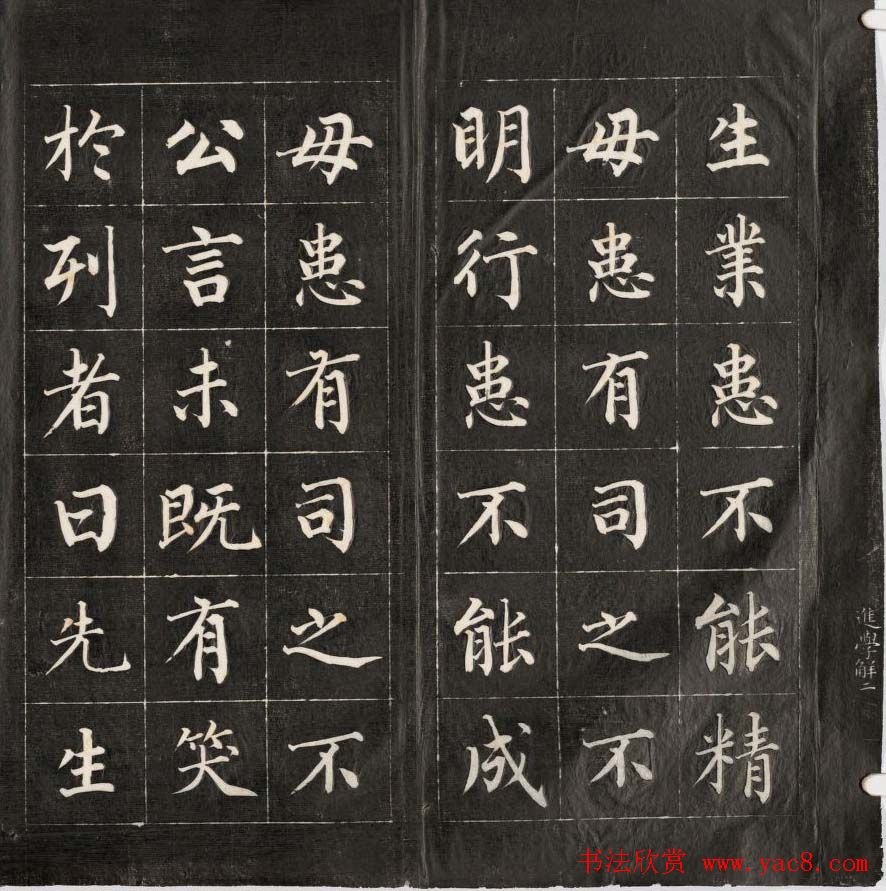 生業患不能精
毋患有司之不
明行患不能成
毋患有司之不
公言未既有笑
於列者曰先生
進學解二
书法欣赏 www.yac8.com